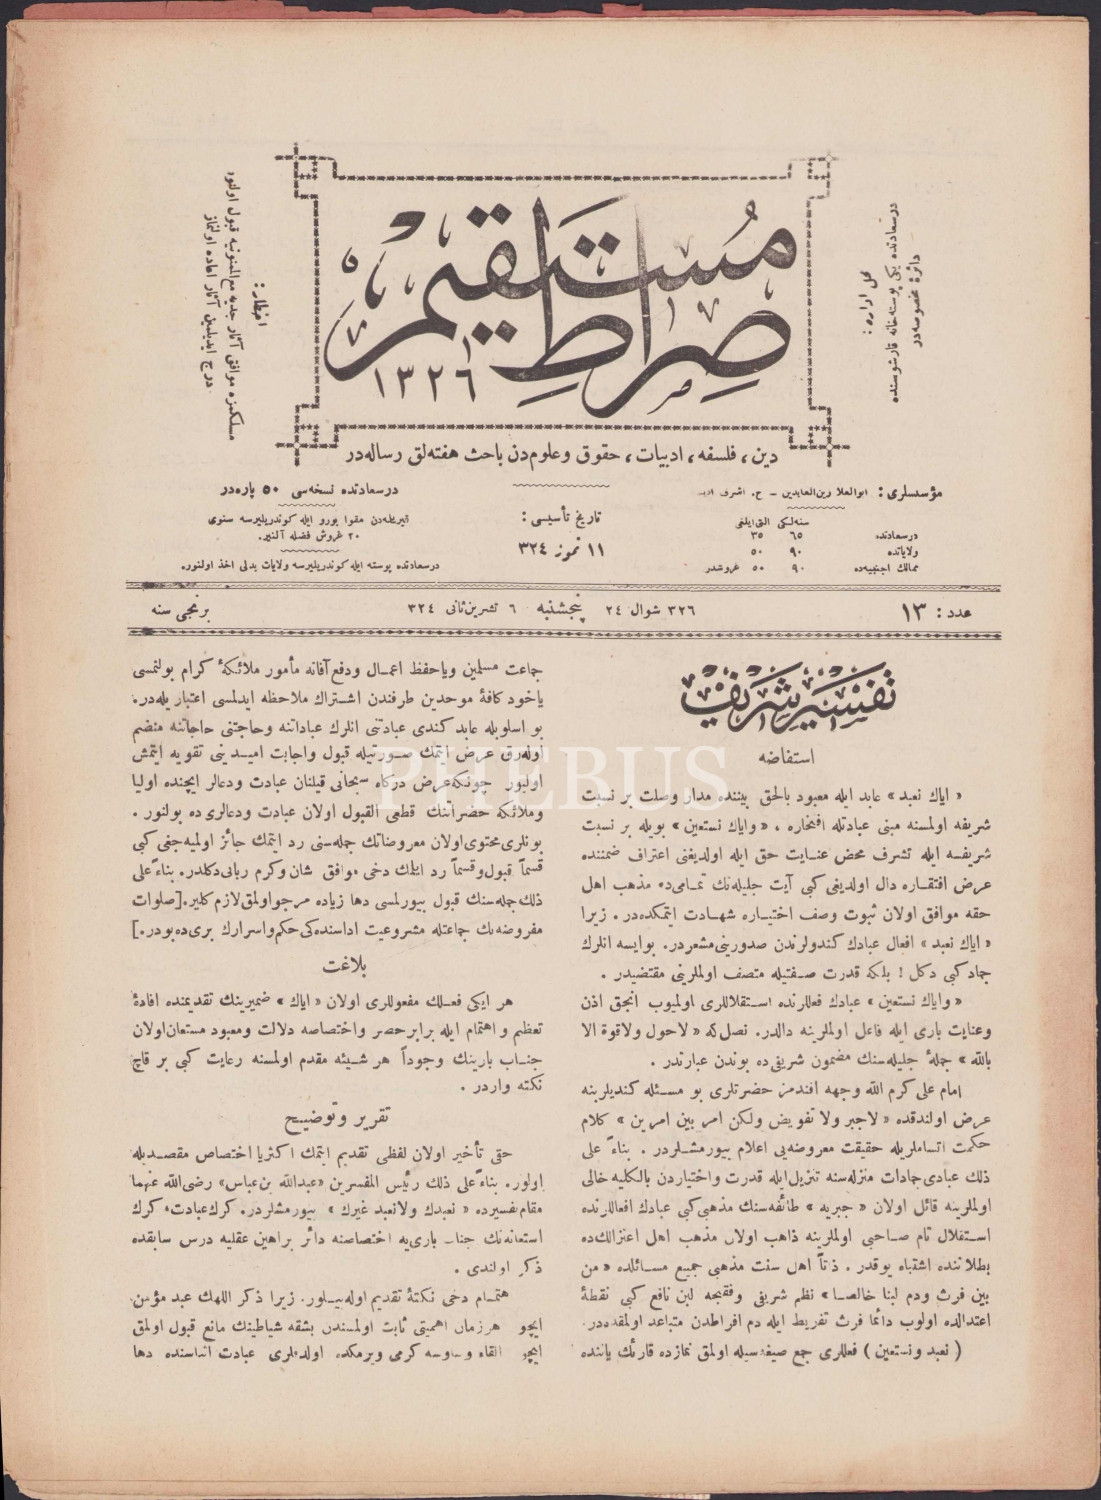 صراط مستقيم
١٣٢٦
درسعادتده يكى پوسته‌خانه قارشوسنده
دائرهٔ مخصوصه‌در
محل اداره :
اخطار :
مسلكمزه موافق آثار جديه مع‌الممنونيه قبول اولنور
درج ايديلمين آثار اعاده اولنماز
دين ، فلسفه ، ادبيات ، حقوق وعلومدن باحث هفته‌لق رساله‌در
مؤسسلرى : ابوالعلا زين‌العابدين – ح . اشرف اديب
سنه‌لكى التى‌ايلغى
درسعادتده ٦٥ ٣٥
ولاياتده ٩٠ ٥٠
ممالك اجنبيه‌ده ٩٠ ٥٠ غروشدر
تاريخ تأسيسى :
١١ تموز ٣٢٤
درسعادتده نسخه‌سى ٥٠ پاره‌در
قيريلمه‌دن مقوا بورو ايله كوندريليرسه سنوى
٢٠ غروش فضله آلنير.
درسعادتده پوسته ايله كوندريليرسه ولايات بدلى اخذ اولنور.
عدد : ١٣
٣٢٦ شوال ٢٤ پنجشنبه ٦ تشرين‌ثانى ٣٢٤
برنجى سنه
تفسير شريف
استفاضه
« اياك نعبد » عابد ايله معبود بالحق بيننده مدار وصلت بر نسبت
شريفه اولمسنه مبنى عبادتله افتخاره ، « واياك نستعين » بويله بر نسبت
شريفسه ايله تشرف محض عنايت حق ايله اولديغنى اعتراف ضمننده
عرض افتقاره دال اولديغى كبى آيت جليله‌نك تمامى‌ده مذهب اهل
حقه موافق اولان ثبوت وصف اختياره شهادت ايتمكده‌در . زيرا
« اياك نعبد » افعال عبادك كندولرندن صدورينى مشعردر. بوايسه انلرك
جماد كبى دكل ! بلكه قدرت صفتيله متصف اولملرينى مقتضيدر .
« واياك نستعين » عبادك فعللرنده استقلاللرى اولميوب انجق اذن
وعنايت بارى ايله فاعل اولملرينه دالدر. نصل‌كه « لاحول ولاقوة الا
بالله » جملهٔ جليله‌سنك مضمون شريفى‌ده بوندن عبارتدر .
امام على كرم الله وجهه افندمز حضرتلرى بو مسئله كنديلرينه
عرض اولندقده « لاجبر ولا تفويض ولكن امر بين امرين » كلام
حكمت اتساملريله حقيقت معروضه‌يى اعلام بيورمشلردر . بناءً على
ذلك عبادى جمادات منزله‌سنه تنزيل‌ايله قدرت واختياردن بالكليه خالى
اولملرينه قائل اولان « جبريه » طائفه‌سنك مذهبى كبى عبادك افعاللرنده
استقلال تام صاحبى اولملرينه ذاهب اولان مذهب اهل اعتزالك‌ده
بطلاننده اشتباه يوقدر . ذتاً اهل سنت مذهبى جميع مسائلده « من
بين فرث ودم لبنا خالصا » نظم شريفى وفقنجه لبن نافع كبى نقطهٔ
اعتدالده اولوب دائما فرث تفريط ايله دم افراطدن متباعد اولمقده‌در.
( نعبد ونستعين ) فعللرى جمع صيغه‌سيله اولمق نمازده قارئك ياننده
جماعت مسلمين وياحفظ اعمال ودفع آفاته مأمور ملائكهٔ كرام بولنمسى
ياخود كافهٔ موحدين طرفندن اشتراك ملاحظه ايدلمسى اعتباريله‌در.
بو اسلوبله عابد كندى عبادتنى انلرك عباداتنه وحاجتنى حاجاتنه منضم
اوله‌رق عرض ايتمك صورتيله قبول واجابت اميدينى تقويه ايتمش
اوليور چونكه عرض دركاه سبحانى قيلنان عبادت ودعالر ايچنده اوليا
وملائكه حضراتنك قطعى القبول اولان عبادت ودعالرى‌ده بولنور .
بونلرى محتوى اولان معروضاتك جمله‌سنى رد ايتمك جائز اولميه‌جغى كبى
قسماً قبول وقسماً رد ايلمك دخى موافق شان وكرم ربانى دكلدر. بناءً على
ذلك جمله‌سنك قبول بيورلمسى دها زياده مرجواولمق لازم كلير.[صلوات
مفروضه‌نك جماعتله مشروعيت اداسنده‌كى حكم واسرارك برى‌ده بودر.]
بلاغت
هر ايكى فعلك مفعوللرى اولان « اياك » ضميرينك تقديمنده افادهٔ
تعظيم واهتمام ايله برابر حصر واختصاصه دلالت ومعبود مستعان اولان
جناب بارينك وجوداً هر شيئه مقدم اولمسنه رعايت كبى بر قاچ
نكته واردر .
تقرير وتوضيح
حقى تأخير اولان لفظى تقديم ايتمك اكثريا اختصاص مقصديله
اولور. بناءً على ذلك رئيس المفسرين «عبدالله بن عباس» رضى الله عنهما
مقام تفسيرده « نعبدك ولانعبد غيرك » بيورمشلردر. كرك عبادت، كرك
استعانه‌نك جناب بارى‌يه اختصاصنه دائر براهين عقليه درس سابقده
ذكر اولندى .
اهتمام دخى نكتهٔ تقديم اوله‌بيلور. زيرا ذكر اللهك عبد مؤمن
ايچون هرزمان اهميتى ثابت اولمسندن بشقه شياطينك مانع قبول اولمق
ايچون القاء وساوسه كرمى ويرمكده اولدقلرى عبادت اثناسنده دها
PHEBUS